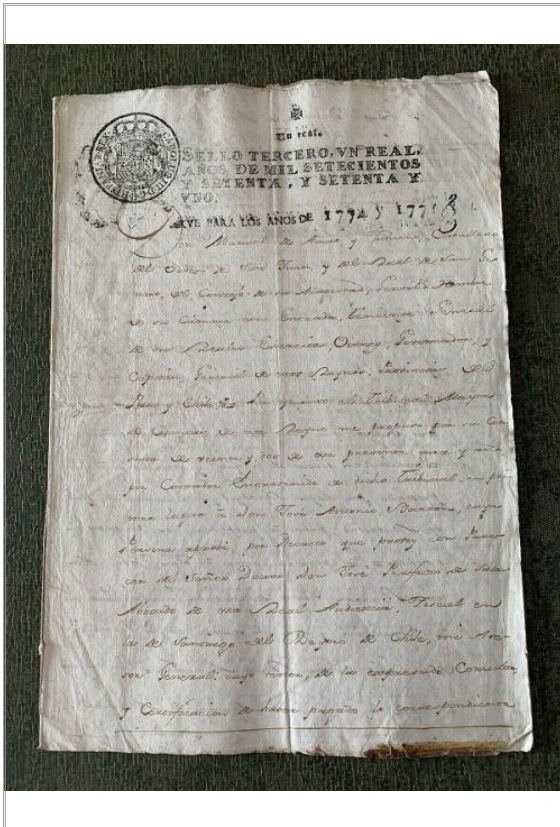 Un real.
SELLO TERCERO. VN REAL.
AÑOS DE MIL SETECIENTOS
Y SETENTA, Y SETENTA Y
VNO.
PARA LOS AÑOS DE 1772 y 1773
Don Manuel de Amat y Cavallero
del Orden de San Juan, y del Real de San
del Consejo de su Magestad,
de su Camara con Entrada, Theniente General
de sus Reales Exercitos, Virrey, Governador, y
Capitan General de estos Reynos, Provincias del
Peru, y Chile Por quanto el Tribunal Mayor
de de este Reyno me propuso por su
de veinte y dos de este presente mes y año
por de dicho Tribunal en
lugar à Don José Antonio cuya
Persona aprobé, por Decreto que provey con
del Señor Doctor Don José Perfecto de Salas
Abogado de esta Real Audiencia, Fiscal en
la de Santiago del Reyno de Chile, mi
General: cuyo tenor, de la expresada Consulta,
y Certificacion de haver pagado lo correspondiente